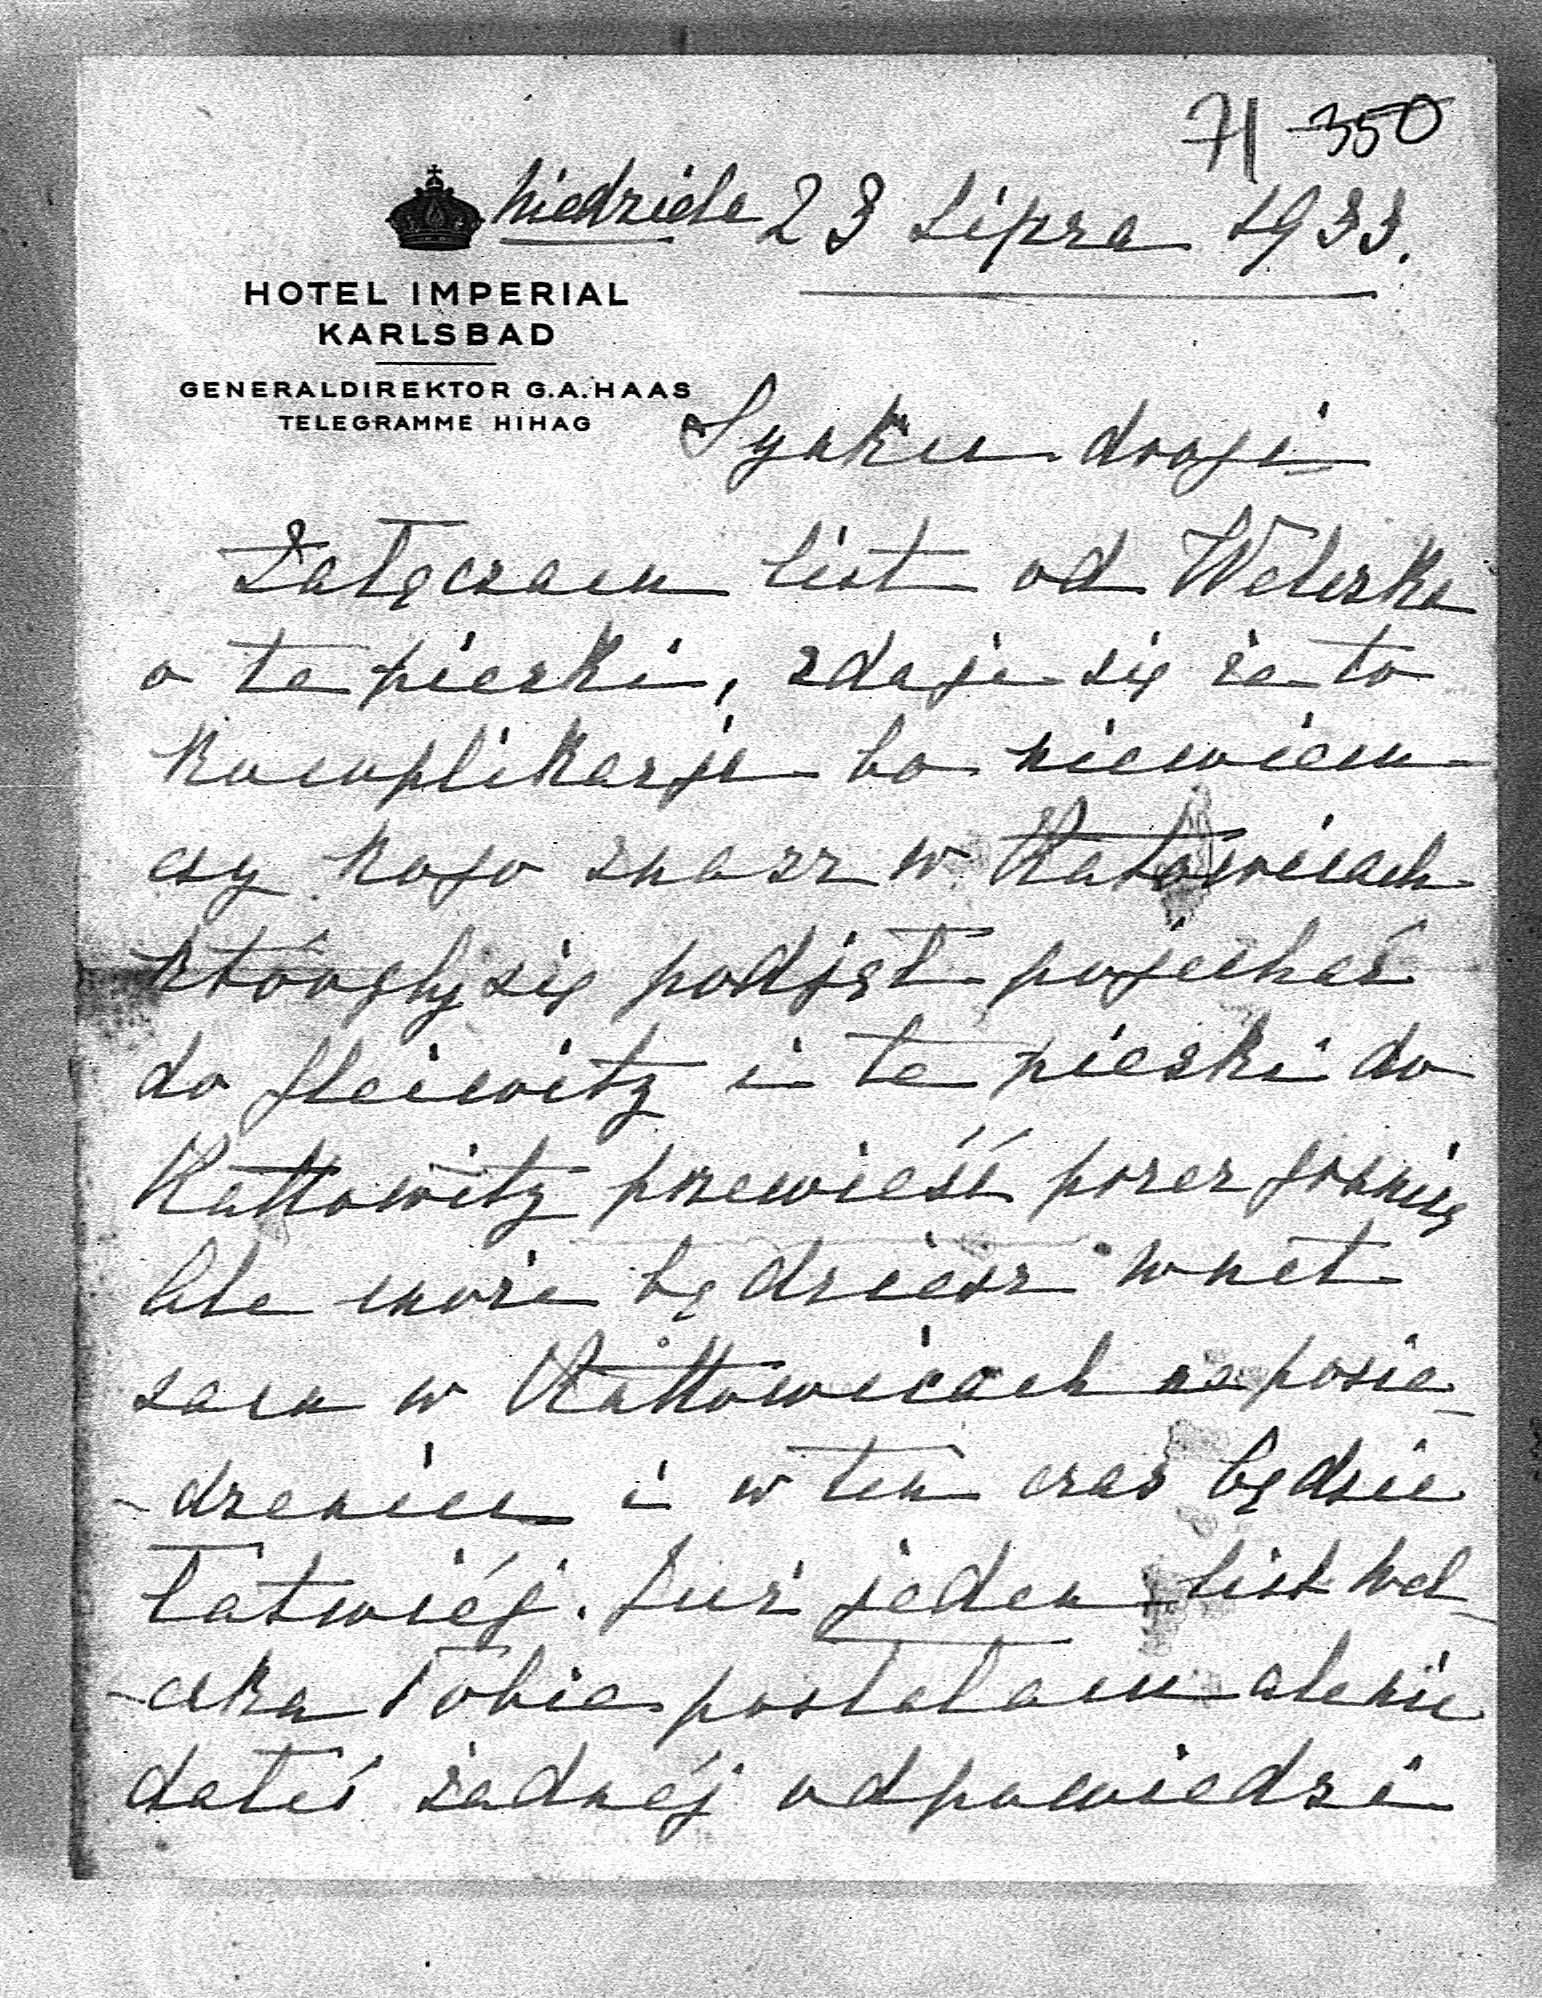 71 350
niedziela 23 Lipca 1933.
HOTEL IMPERIAL
KARLSBAD
GENERALDIREKTOR G.A. HAAS
TELEGRAMME HIHAG
Synku drogi
Załączam list od
o te pieski, zdaje się że to
komplikacje bo niewiem
czy kogo znasz w Katowicach
któryby się podjął pojechać
do Gleiwitz i te pieski do
Kattowitz przewieść przez granicę
Ale może będziesz wnet
sam w Kattowicach na posie-
-dzeniu i w ten czas będzie
łatwiéj. Już jeden list Wel-
-czka Tobie posłałam ale nie
dałeś żadnéj odpowiedzi